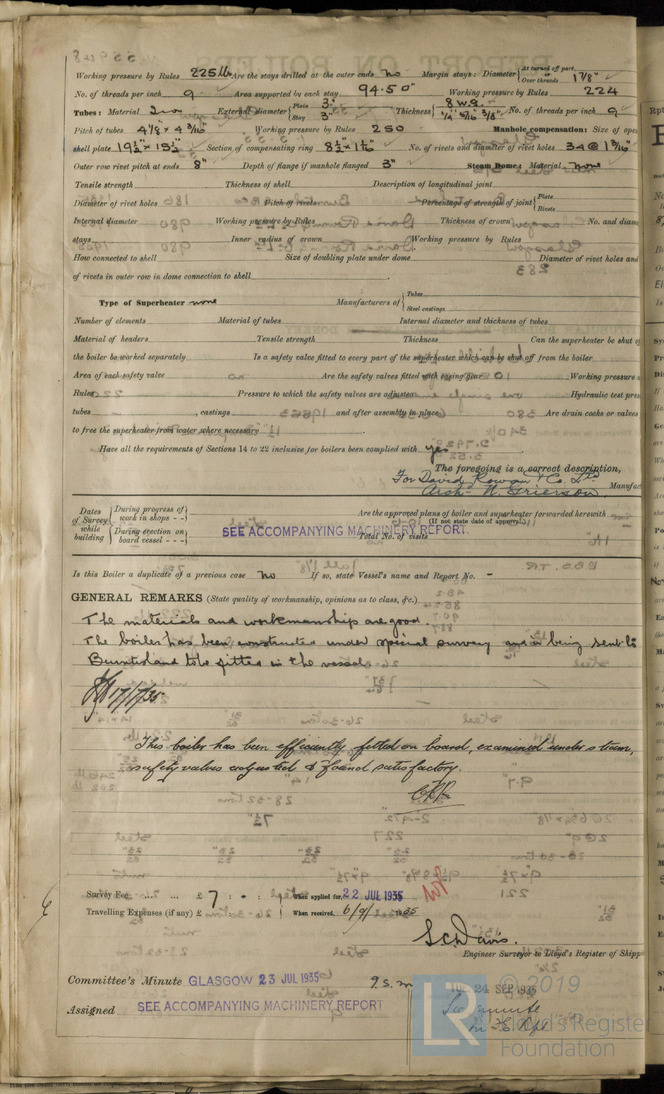 Working pressure by Rules 225 lb. Are the stays drilled at the outer ends No Margin stays: Diameter { At turned off part, or Over threads 1 7/8"
No. of threads per inch 9 Area supported by each stay 94.50" Working pressure by Rules 224
Tubes: Material Iron External diameter { Plain 3" Stay 3" Thickness { 8 W.G. 1/4" 5/16" 3/8" No. of threads per inch 9
Pitch of tubes 4 1/8" x 4 3/16" Working pressure by Rules 250 Manhole compensation: Size of ope
shell plate 19 1/2" x 15 1/2" Section of compensating ring No. of rivets and diameter of rivet holes 34 @ 1 3/16"
Outer row rivet pitch at ends 8" Depth of flange if manhole flanged 3" Steam Dome: Material None
Tensile strength Thickness of shell Description of longitudinal joint
Diameter of rivet holes Pitch of rivets Percentage of strength of joint { Plate Rivets
Internal diameter Working pressure by Rules Thickness of crown No. and diame
stays Inner radius of crown Working pressure by Rules
How connected to shell Size of doubling plate under dome Diameter of rivet holes and
of rivets in outer row in dome connection to shell
Type of Superheater None Manufacturers of { Tubes Steel castings
Number of elements Material of tubes Internal diameter and thickness of tubes
Material of headers Tensile strength Thickness Can the superheater be shut o
the boiler be worked separately Is a safety valve fitted to every part of the superheater which can be shut off from the boiler
Area of each safety valve Are the safety valves fitted with easing gear Working pressure
Rules Pressure to which the safety valves are adjusted Hydraulic test pres
tubes , castings and after assembly in place Are drain cocks or valves
to free the superheater from water where necessary
Have all the requirements of Sections 14 to 22 inclusive for boilers been complied with yes
The foregoing is a correct description,
For David Rowan & Co. Ltd
Arch. N. Grierson Manufac
Dates of Survey while building { During progress of work in shops - - } { During erection on board vessel - - - }
Are the approved plans of boiler and superheater forwarded herewith
(If not state date of approval.)
SEE ACCOMPANYING MACHINERY REPORT.
Total No. of visits
Is this Boiler a duplicate of a previous case No If so, state Vessel's name and Report No. -
GENERAL REMARKS (State quality of workmanship, opinions as to class, &c.)
The materials and workmanship are good.
The boiler has been constructed under special survey and is being sent to
Burntisland to be fitted in the vessel.
17/7/35
This boiler has been efficiently fitted on board, examined under steam,
safety valves adjusted & found satisfactory.
Survey Fee ... ... £ 7 : - : When applied for, 22 JUL 1935
Travelling Expenses (if any) £ : : When received, 6/9/1935
S.C. Davis.
Engineer Surveyor to Lloyd's Register of Shipp
Committee's Minute GLASGOW 23 JUL 1935
TUE. 24 SEP 1935
Assigned SEE ACCOMPANYING MACHINERY REPORT
See minute
on F.E. Rpt
© 2019
LR
Lloyd's Register
Foundation